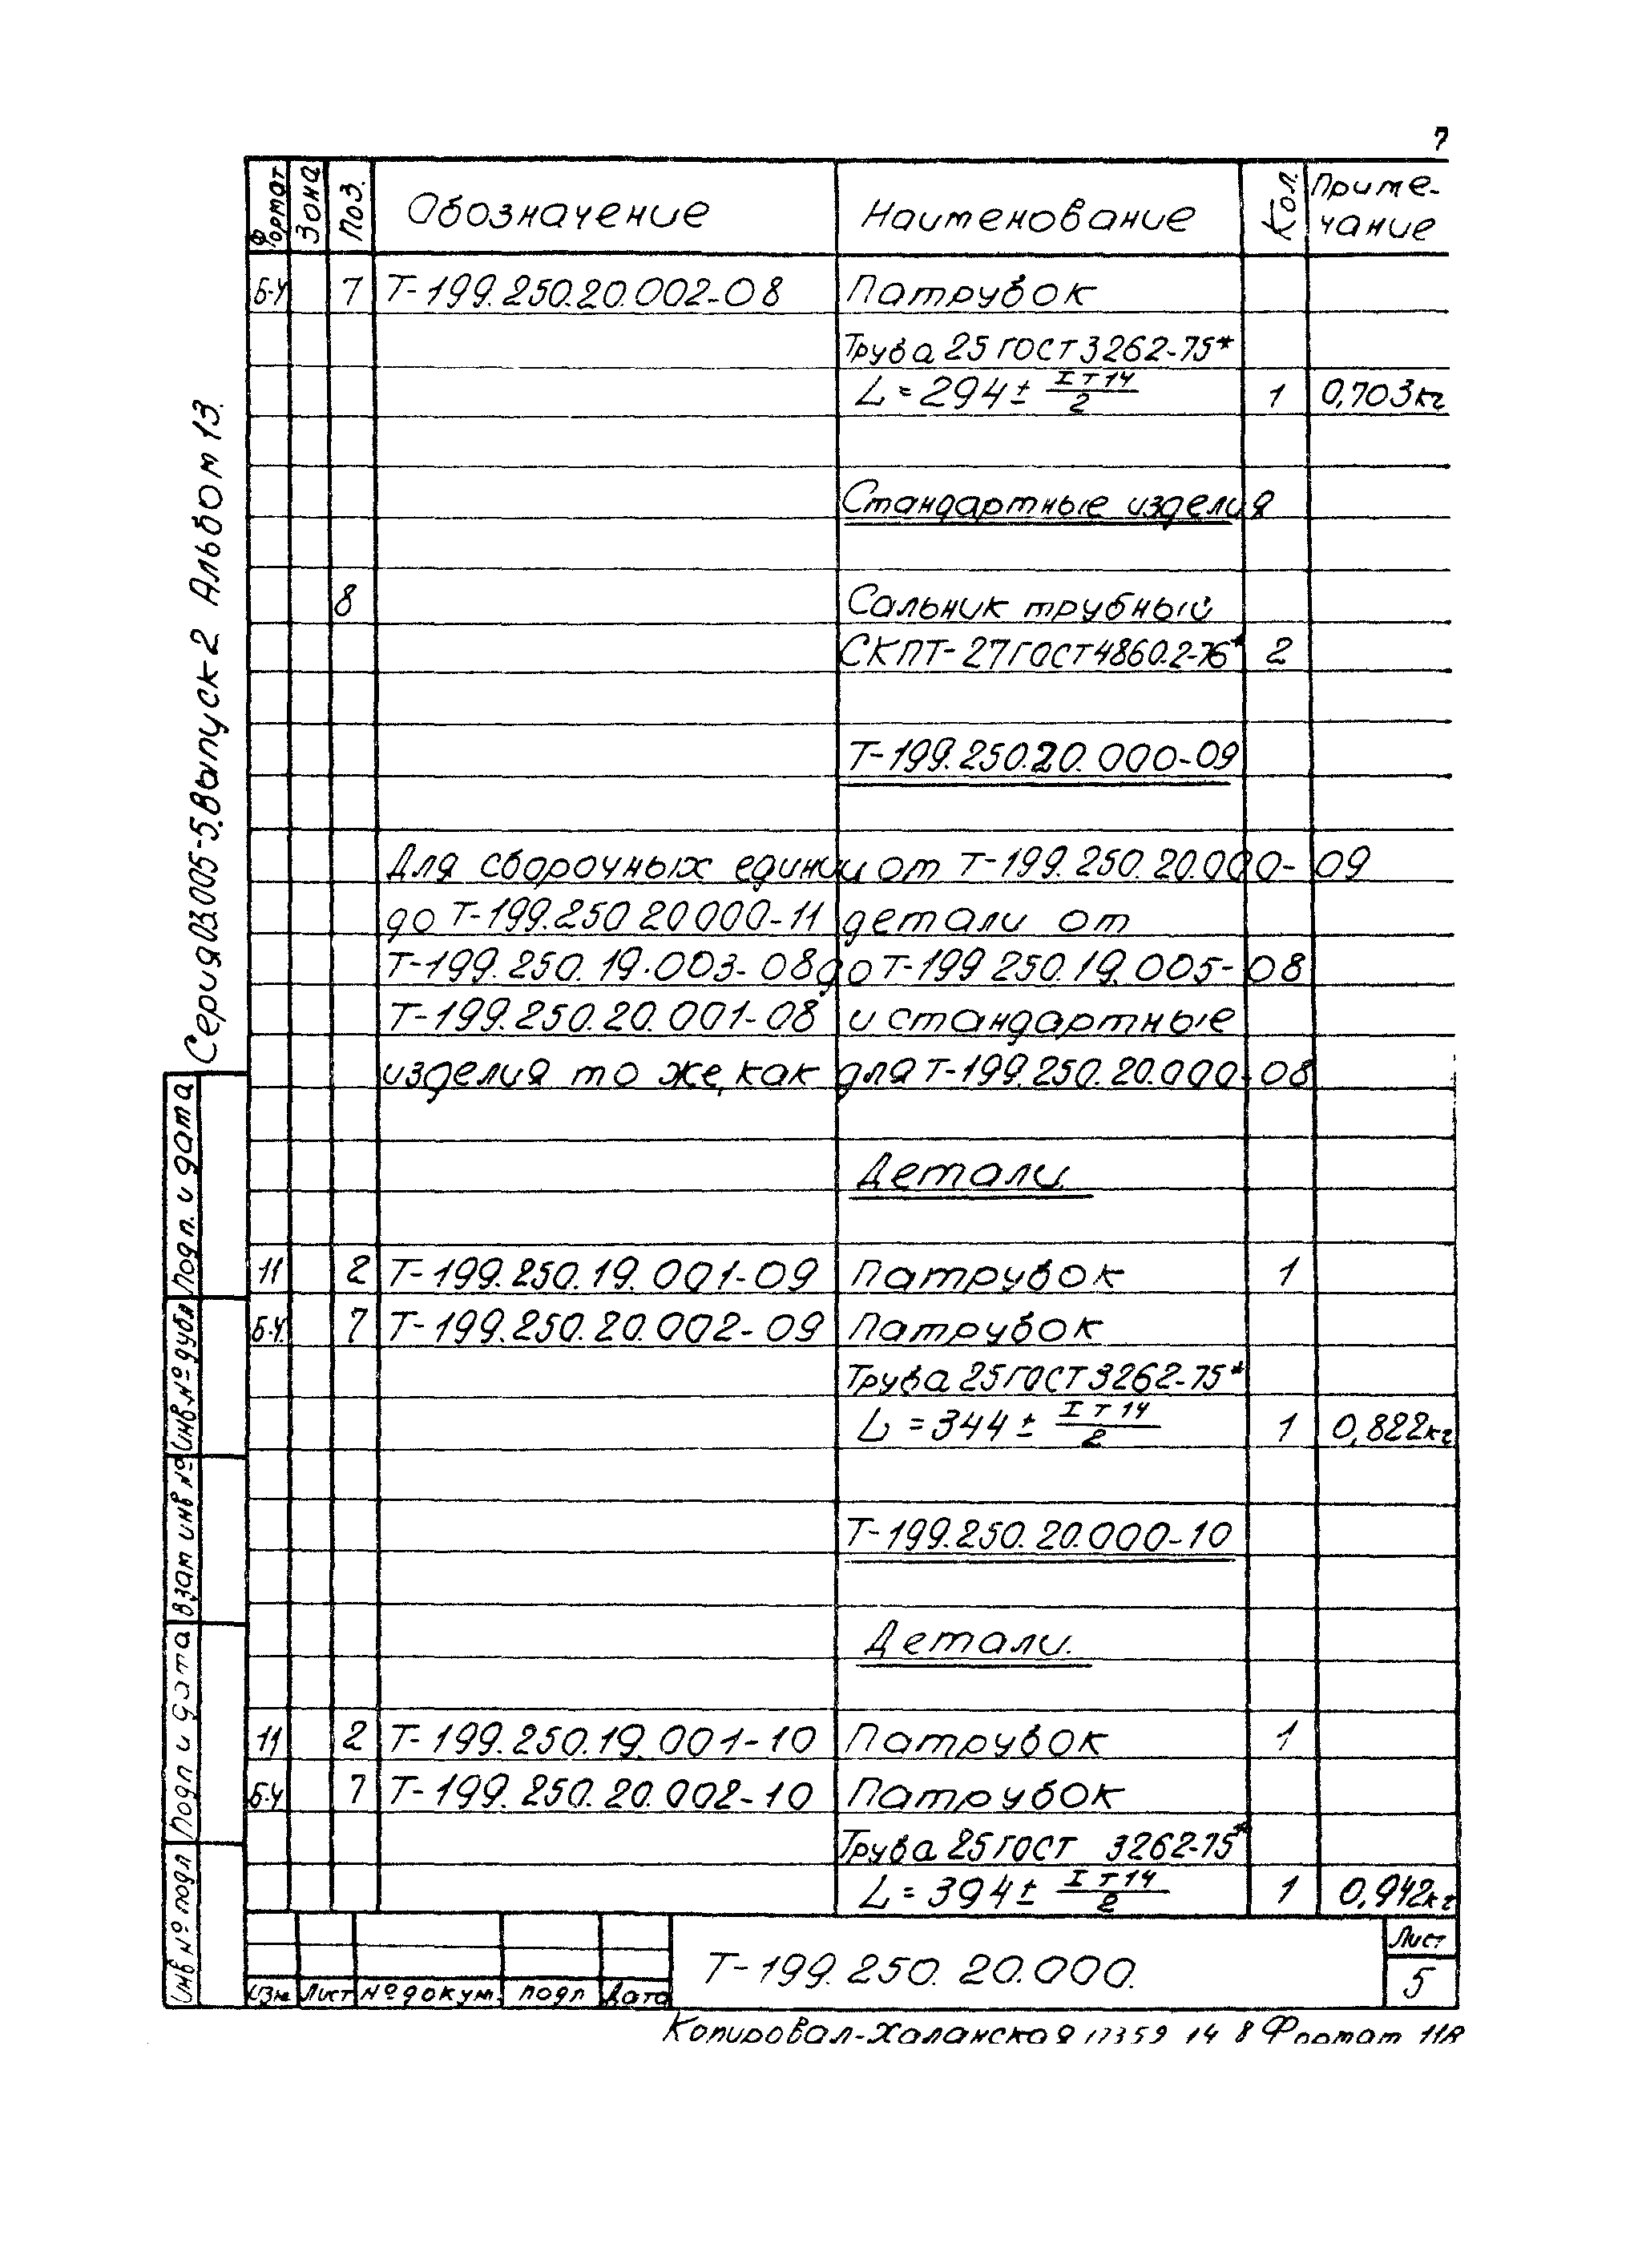 7
Формат Зона Поз. Обозначение Наименование Кол. Приме-
чание
Б-Ч 7 Т-199.250.20.002-08 Патрубок
Труба 25 ГОСТ 3262-75*
L=294± IT14/2 1 0,703кг
Стандартные изделия
8 Сальник трубный
СКПТ-27 ГОСТ 4860.2-76* 2
Т-199.250.20.000-09
Для сборочных единиц от Т-199.250.20.000-09
до Т-199.250 20000-11 детали от
Т-199.250.19.003-08 до Т-199 250.19.005-08
Т-199.250.20.001-08 и стандартные
изделия то же, как для Т-199.250.20.000-08
Детали.
11 2 Т-199.250.19.001-09 Патрубок 1
Б-Ч. 7 Т-199.250.20.002-09 Патрубок
Труба 25 ГОСТ 3262-75*
L=344± IT14/2 1 0,822кг
Т-199.250.20.000-10
Детали.
11 2 Т-199.250.19.001-10 Патрубок 1
Б-Ч 7 Т-199.250.20.002-10 Патрубок
Труба 25 ГОСТ 3262-75*
L=394± IT14/2 1 0,942кг
Изм Лист № докум. подп Дата
Т-199.250.20.000.
Лист
5
Копировал-Халанская 17359 14 8 Формат 11
Серия 03.005-5. Выпуск 2 Альбом 13.
Подп. и дата
Инв.№ дубл
Взам инв №
Подп и дата
Инв № подл